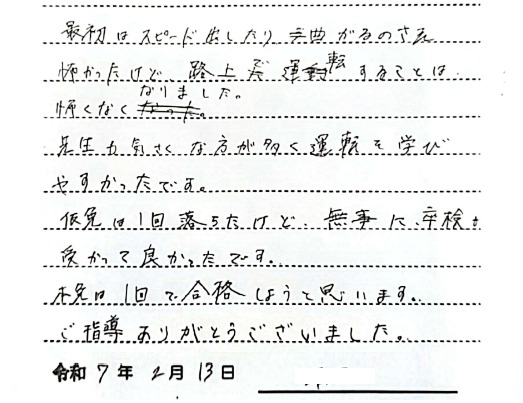 最初はスピード出したり曲がるのさえ
怖かったけど、路上だで運転することは
怖くなくなりました。
先生も気さくな方が多く運転を学び
やすかったです。
仮免は1回落ちたけど、無事に、卒検も
受かって良かったです。
本免は1回で合格しようと思います。
ご指導ありがとうございました。
令和7年2月13日